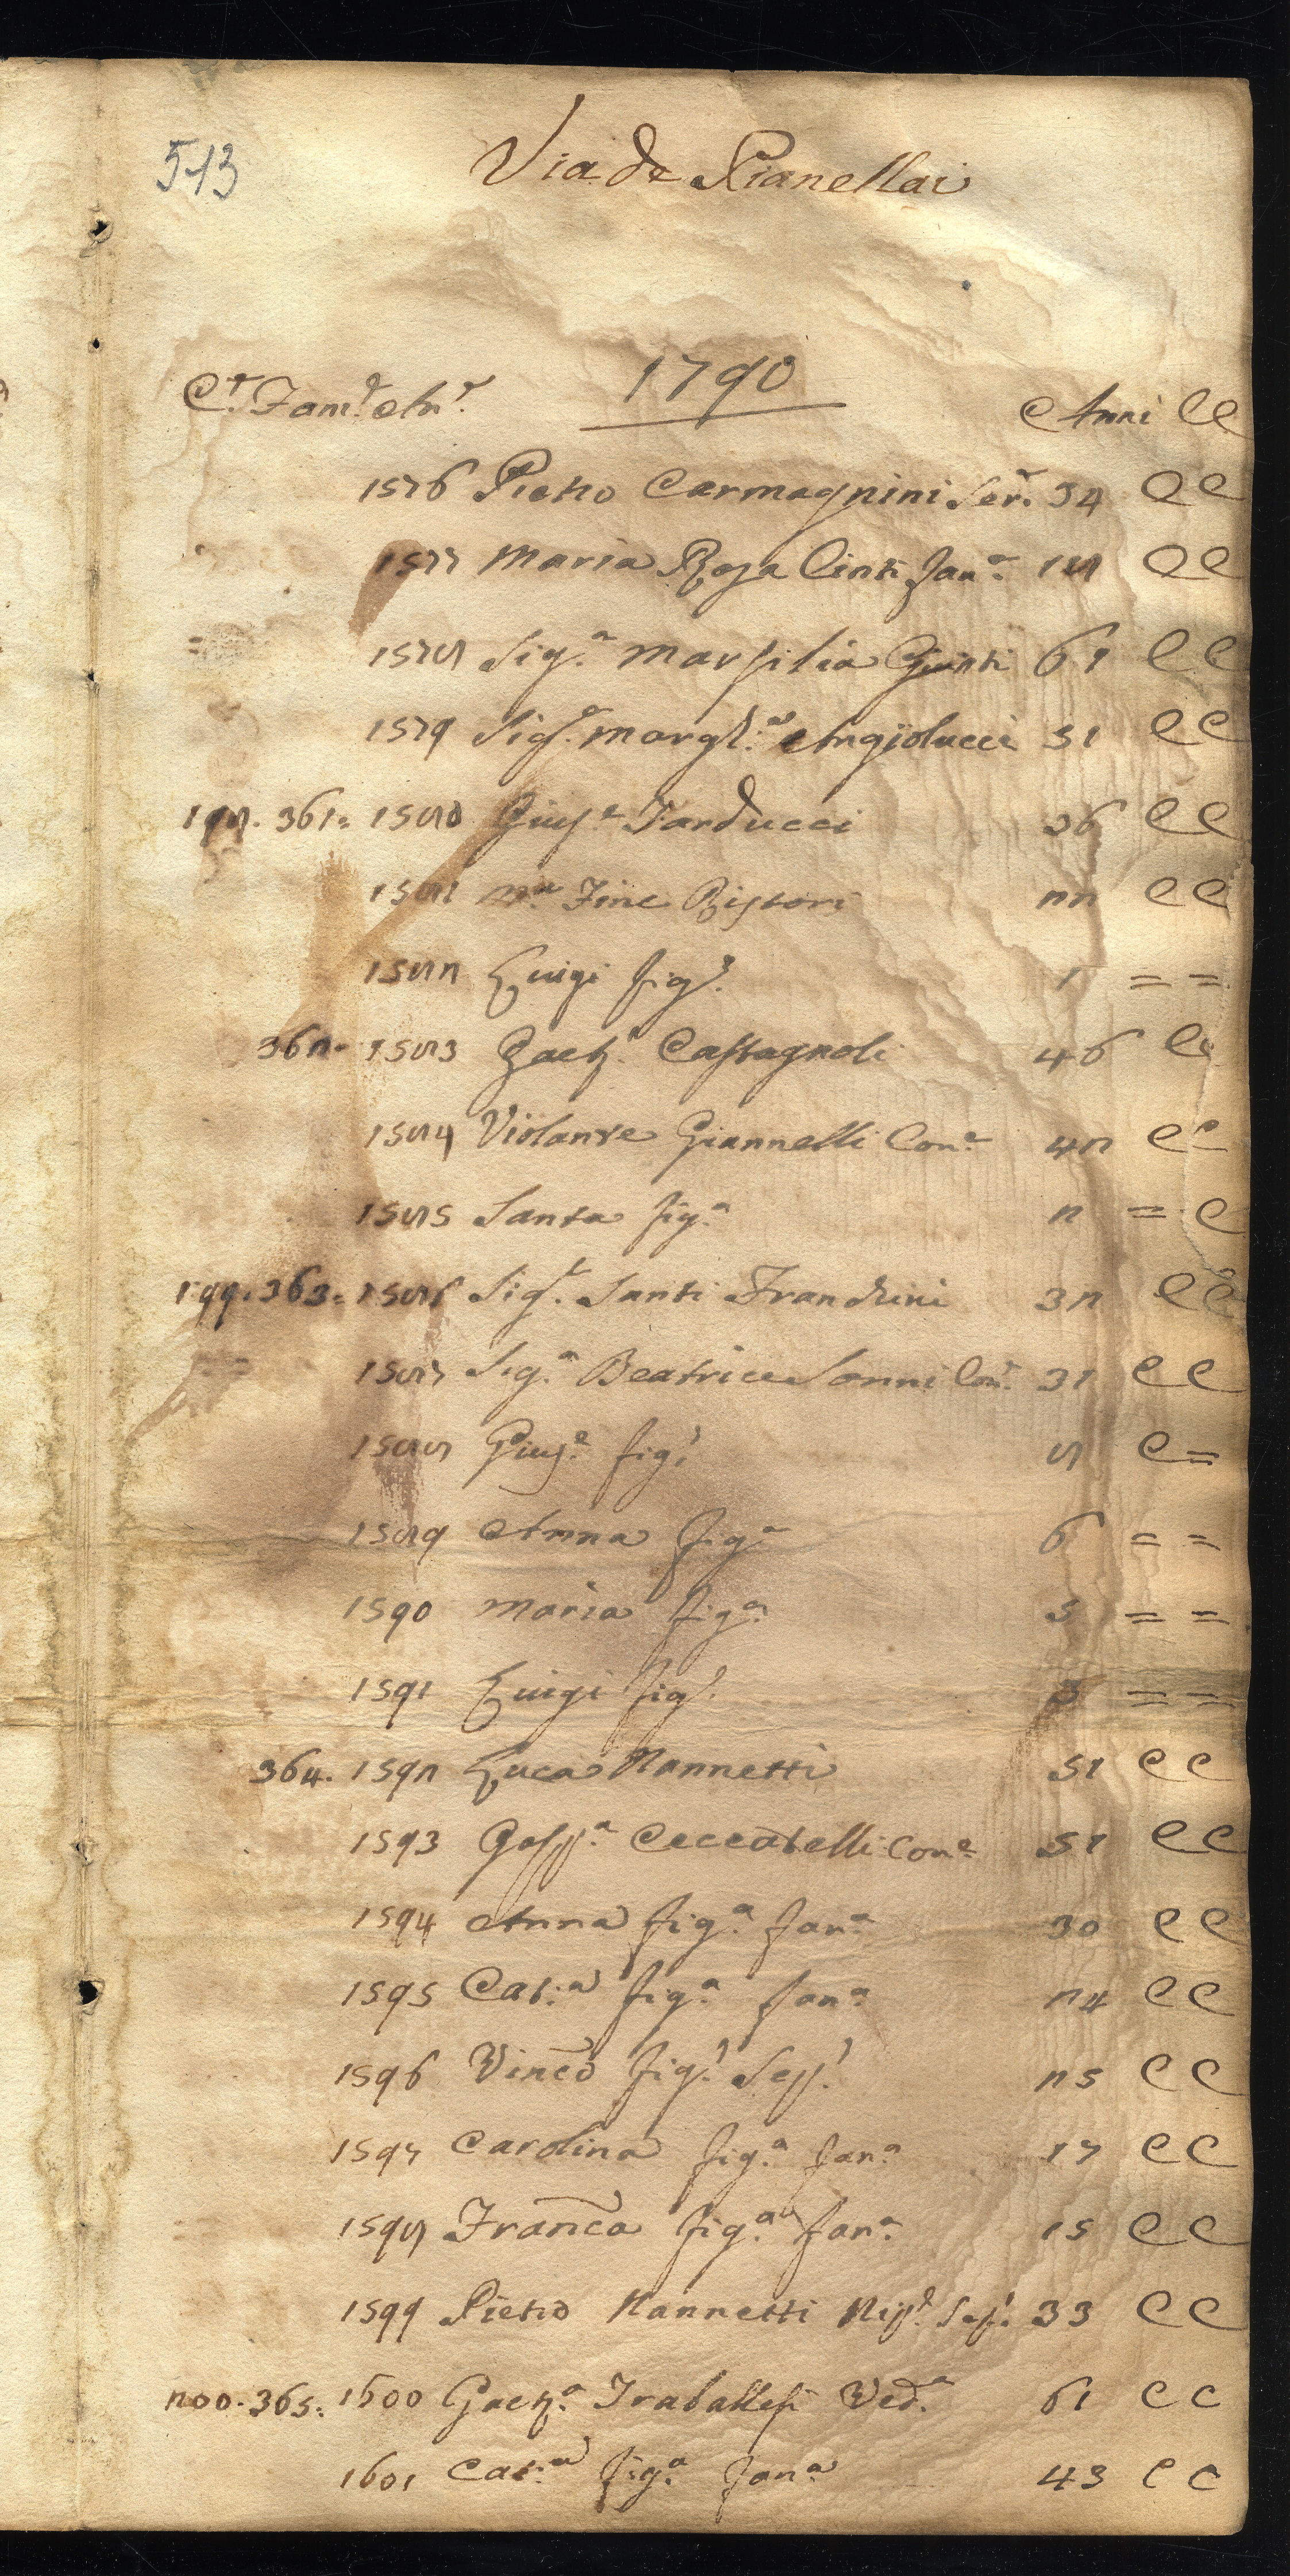 543
Via de Pianellai
1790
C.e Fam.e An.e Anni CC
1576 Pietro Carmagnini Ser.e 34 CC
1577 Maria Rosa Cinti fan.a 18 CC
1578 Sig.a Marsilia Giunti 61 CC
1579 Sig.a Margh.a Angiolucci 51 CC
198. 361. 1580 Gius.e Tarducci 36 CC
1581 M.a Fine Ristori 22 CC
1582 Luigi fig.o 1 = =
362. 1583 Gaet.o Castagnoli 46 CC
1584 Violante Giannelli Con.e 42 CC
1585 Santa fig.a 2 = C
199. 363. 1586 Sig.r Santi 32 CC
1587 Sig.a Beatrice Sonni Con.e 31 CC
1588 Gius.e fig.o 8 C =
1589 Anna fig.a 6 = =
1590 Maria fig.a 5 = =
1591 Luigi fig.o 3 = =
364. 1592 Luca Nannetti 51 CC
1593 Gasp.a Ceccatelli Con.e 51 CC
1594 Anna fig.a fan.a 30 CC
1595 Cat.a fig.a fan.a 24 CC
1596 Vinco fig.o 25 CC
1597 Carolina fig.a fan.a 17 CC
1598 Franca fig.a fan.a 15 CC
1599 Pietro Nannetti Nip.e 33 CC
200. 365. 1600 Gaet.a Traballesi Ved.a 61 CC
1601 Cat.a fig.a fan.a 43 CC